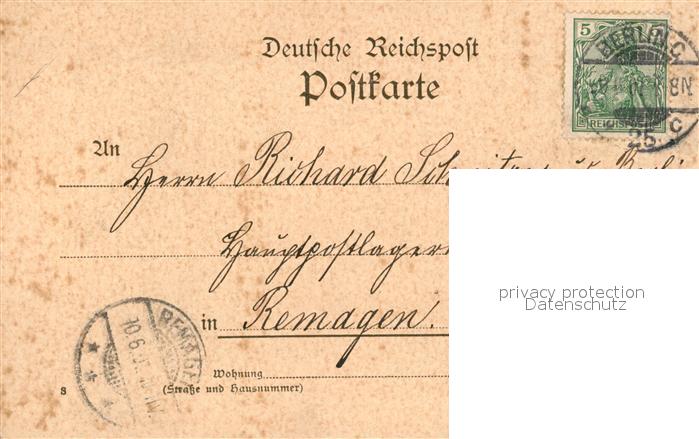 Deutsche Reichspost
Postkarte
5
REICHSPOST
BERLIN.C
8N.
25. c
An
Herrn Richard
Hauptpostlagern
in Remagen.
REMAG
10.6.
Wohnung
(Straße und Hausnummer)
8
privacy protection
Datenschutz